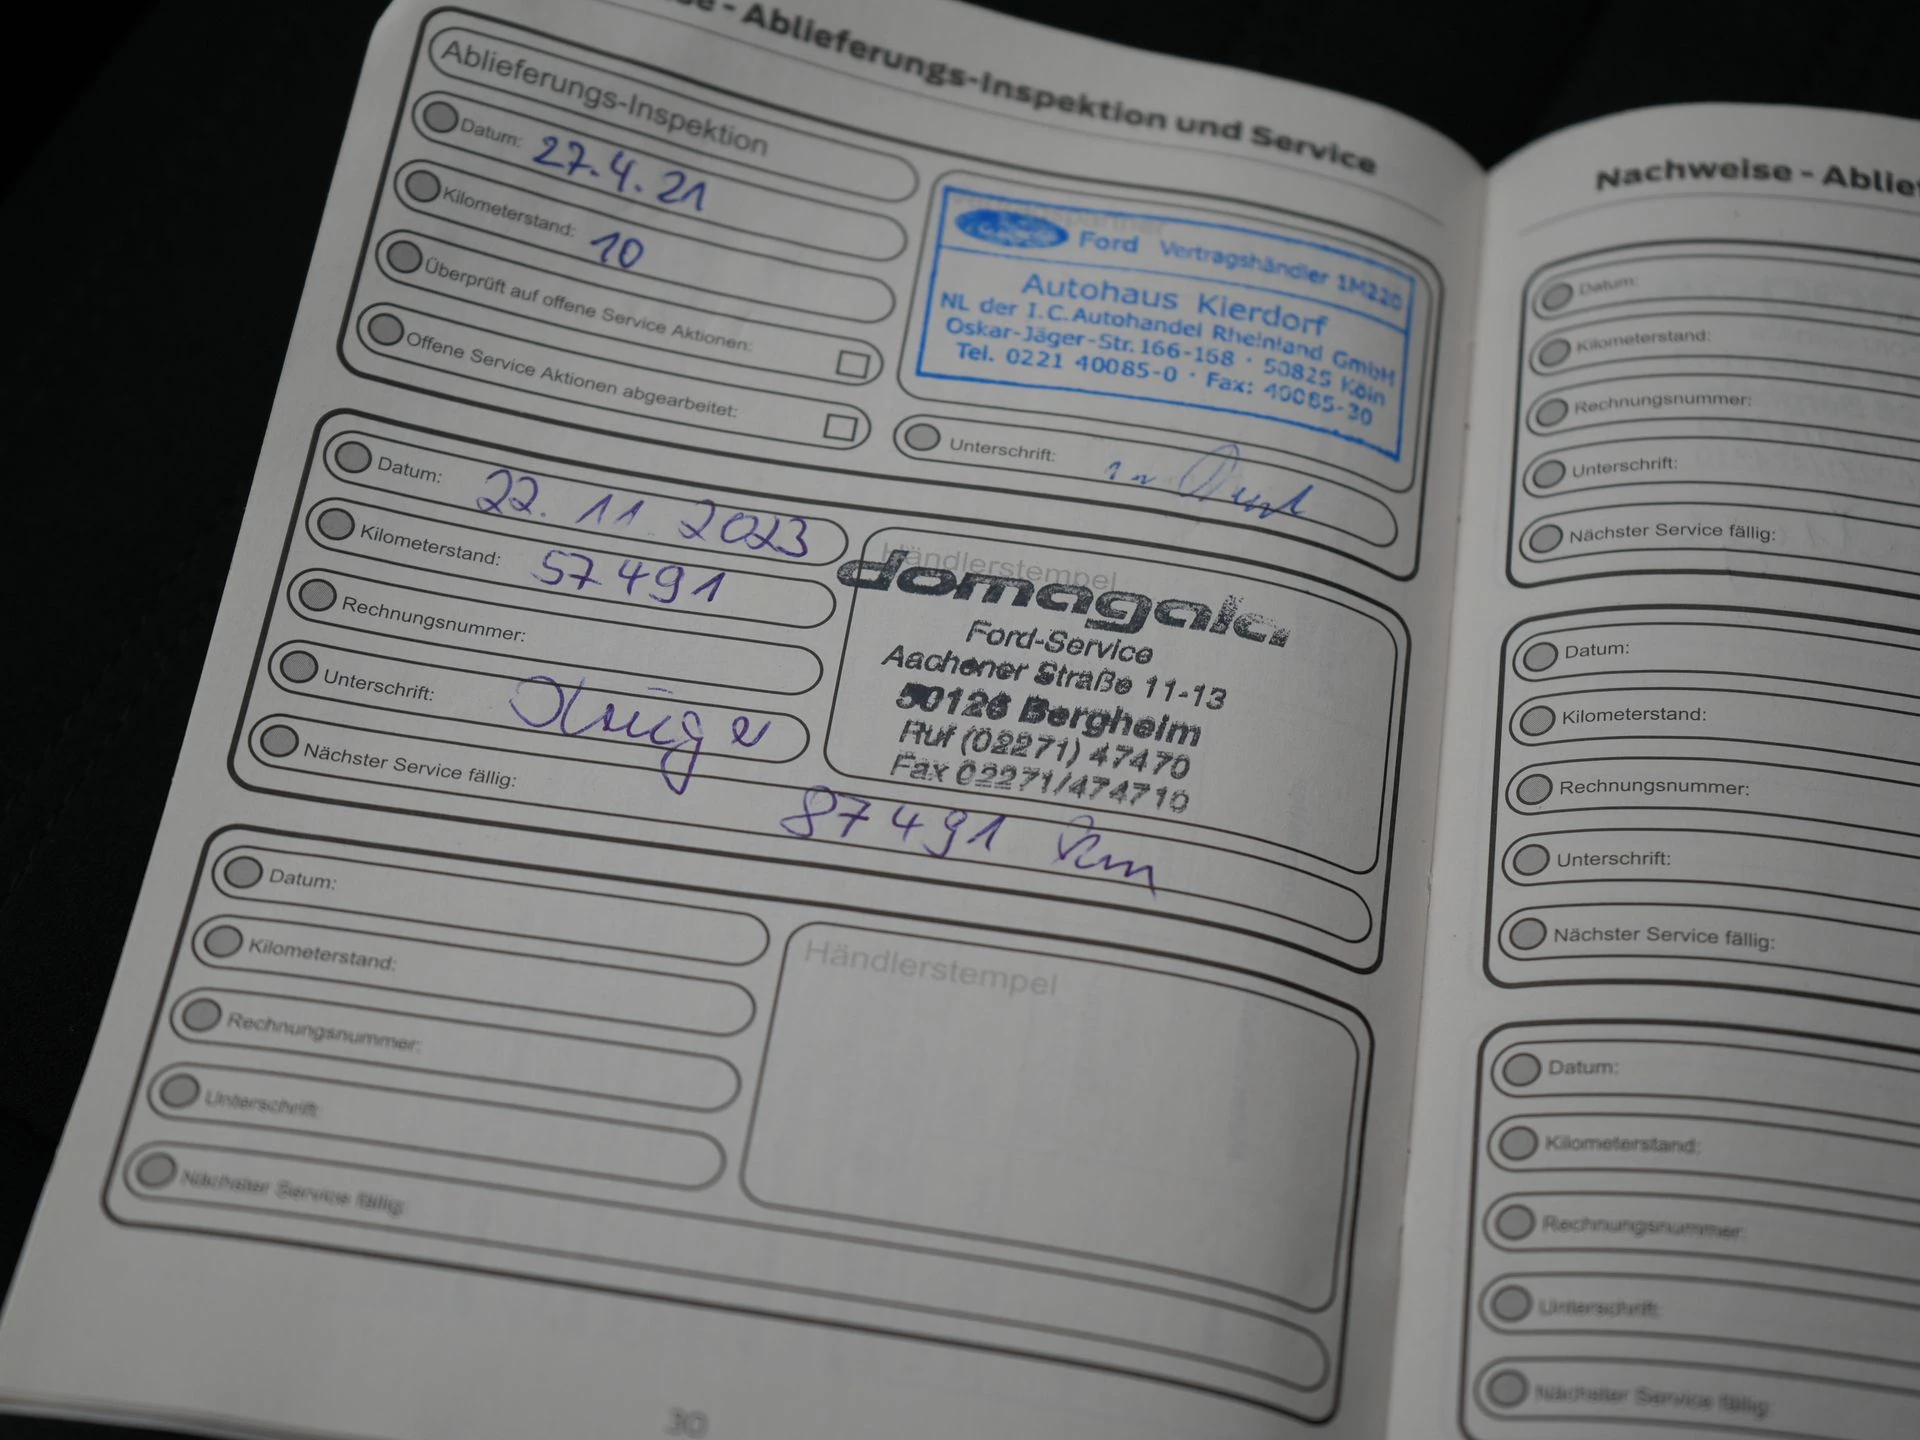 - Ablieferungs-Inspektion und Service
Ablieferungs-Inspektion
Datum: 27.4.21
Kilometerstand: 10
Überprüft auf offene Service Aktionen:
Offene Service Aktionen abgearbeitet:
Ford Vertragshändler 1M220
Autohaus Kierdorf
NL der I.C.Autohandel Rheinland GmbH
Oskar-Jäger-Str. 166-168 · 50825 Köln
Tel. 0221 40085-0 · Fax: 40085-30
Unterschrift:
Datum: 22.11.2023
Kilometerstand: 57491
Rechnungsnummer:
Unterschrift:
Nächster Service fällig: 87491 km
Händlerstempel
domagala
Ford-Service
Aachener Straße 11-13
50126 Bergheim
Ruf (02271) 47470
Fax 02271/474710
Datum:
Kilometerstand:
Rechnungsnummer:
Unterschrift:
Nächster Service fällig:
Händlerstempel
30
Nachweise -
Datum:
Kilometerstand:
Rechnungsnummer:
Unterschrift:
Nächster Service fällig:
Datum:
Kilometerstand:
Rechnungsnummer:
Unterschrift:
Nächster Service fällig:
Datum:
Kilometerstand:
Rechnungsnummer:
Unterschrift:
Nächster Service fällig: